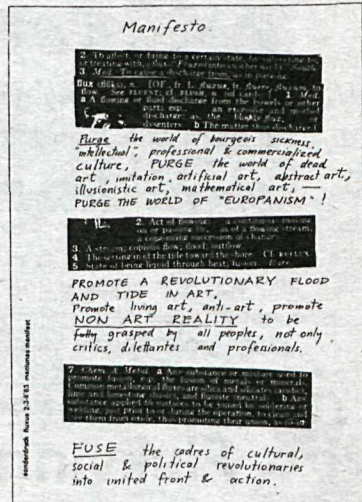 Manifesto.
2. To affect, or bring to a certain state, by subjecting to,
or treating with, a flux. "Fluxed into another world."
3. Med. To cause a discharge from, as in purging.
flux (flŭks), n. [OF., fr. L. fluxus, fr. fluere, fluxum, to
flow. See FLUENT; cf. FLUSH, n. (of cards).] 1. Med.
a A flowing or fluid discharge from the bowels or other
part; esp., an excessive and morbid
discharge; as, the bloody flux, or
dysentery. b The matter thus discharged.
Purge the world of bourgeois sickness,
"intellectual", professional & commercialized
culture, PURGE the world of dead
art, imitation, artificial art, abstract art,
illusionistic art, mathematical art, —
PURGE THE WORLD OF "EUROPANISM"!
2. Act of flowing: a continuous moving
on or passing by, as of a flowing stream;
a continuing succession of changes.
3. A stream; copious flow; flood; outflow.
4. The setting in of the tide toward the shore. Cf. REFLUX.
5. State of being liquid through heat; fusion. Rare.
PROMOTE A REVOLUTIONARY FLOOD
AND TIDE IN ART,
Promote living art, anti-art, promote
NON ART REALITY to be
fully grasped by all peoples, not only
critics, dilettantes and professionals.
7. Chem. & Metal. a Any substance or mixture used to
promote fusion, esp. the fusion of metals or minerals.
Common metallurgical fluxes are silica and silicates (acidic),
lime and limestone (basic), and fluorite (neutral). b Any
substance applied to surfaces to be joined by soldering or
welding, just prior to or during the operation, to clean and
free them from oxide, thus promoting their union, as rosin.
FUSE the cadres of cultural,
social & political revolutionaries
into united front & action.
sonderdruck fluxus 2-3-II '63 maciunas manifest